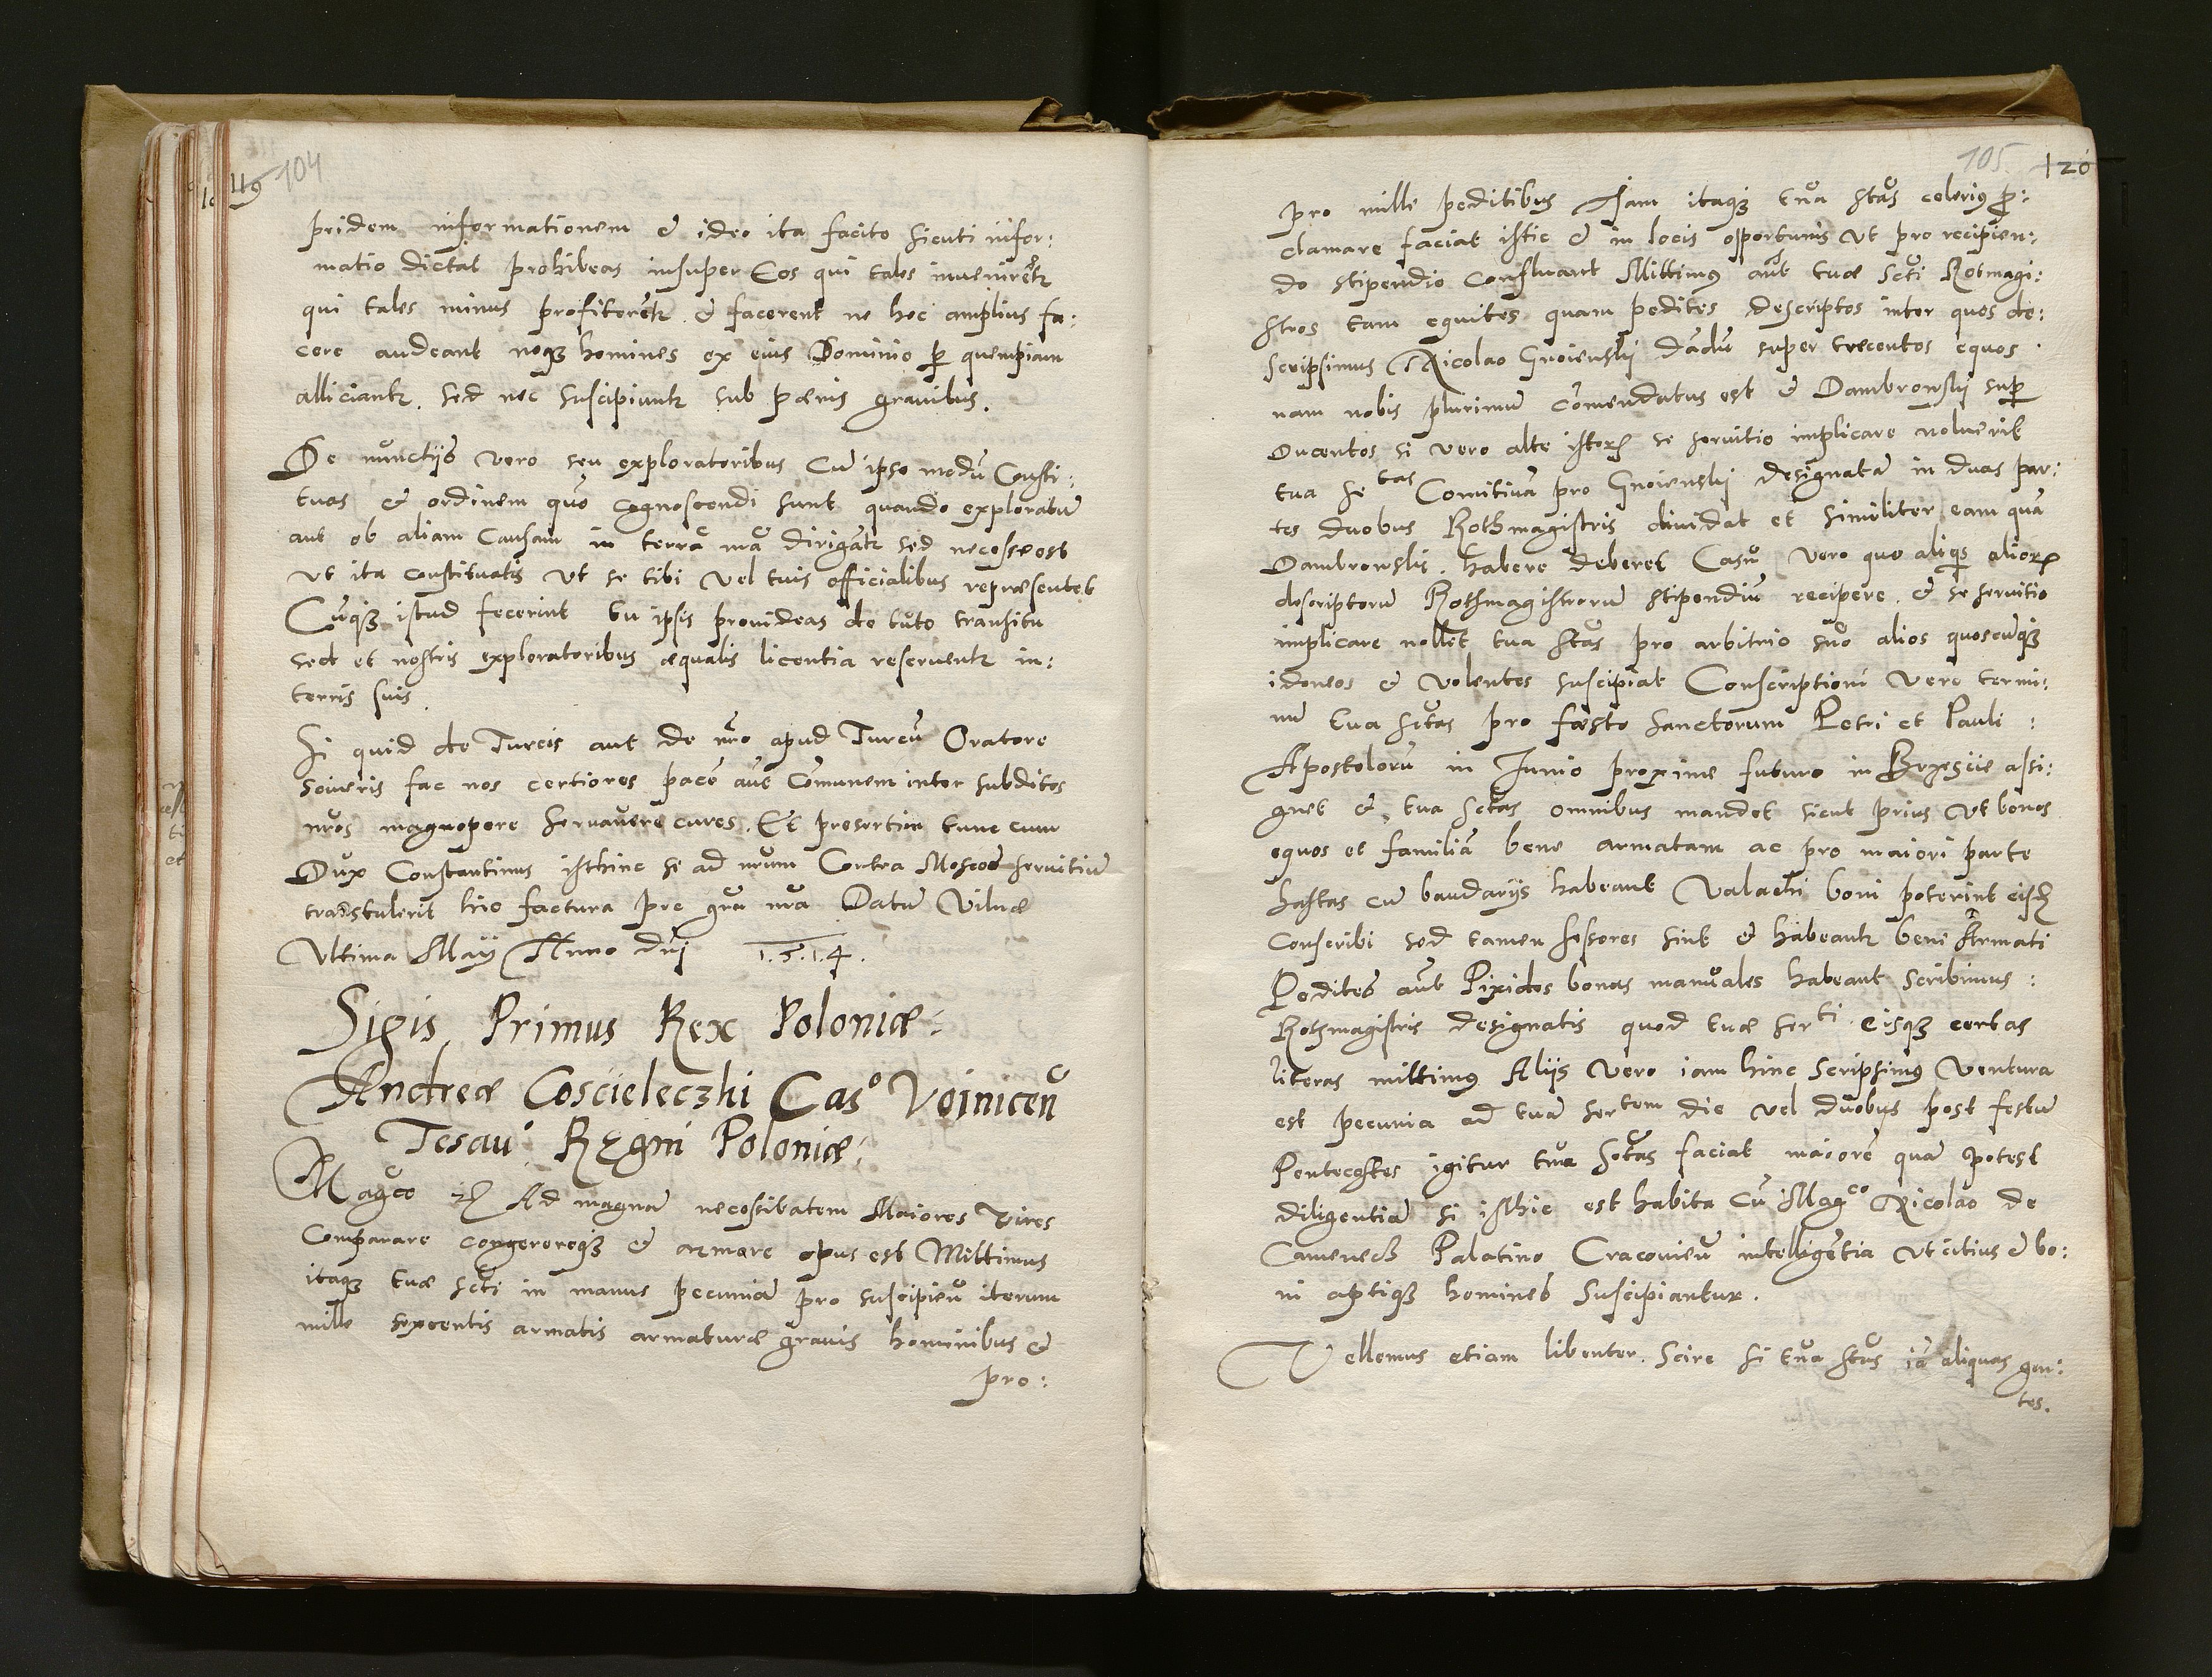 119 104
pridem informationem & ideo ita facito sicuti infor:
matio dictat prohibeas insuper Eos qui tales inuenirētr
qui tales minus profiterētr & facerent ne hec amplius fa:
cere audeant neq3 homines ex eius Dominio p quempiam
alliciantr. sed nec suscipiantr sub pœnis grauibus.
De nunctijs vero seu exploratoribus Cū ipso modū Consti:
tuas & ordinem quo cognoscendi sunt quando exploratū
aut ob aliam Causam in terrā nrā dirigātr sed necesse est
vt ita constituatis vt se tibi vel tuis officialibus repræsentet
Cūq3 istud fecerint tu ipsis prouideas de tuto transitu
sed et nostris exploratoribus æqualis licentia reseruentr in:
terris suis.
Si quid de Turcis aut de nro apud Turcū Oratore
sciueris fac nos certiores pacē aut Cōmunem inter subditos
nros magnopere seruauere cures. Et presertim tunc cum
Dux Constantinus isthinc se ad nrum Contra Moscos seruitiū
transtulerit hic factura pre gra nra Datū Vilnæ
Vltima Maij Anno dnj 1.5.1.4.
Sigis. Primus Rex Poloniæ:
Andreæ Coscieleczhi Cas° Voinicen
Tesau. Regni Poloniæ:
Magco Ad magnā necessitatem Maiores vires
Comparare congerereq3 & armare opus est Mittimus
itaq3 tuæ scti in manus pecuniā pro suscipien iterum
mille sexcentis armatis armaturæ grauis hominibus &
pro:
105. 120
pro mille peditibus Jam itaq3 tua stas celerius p:
clamare faciat istic & in locis opportunis vt pro recipien:
do stipendio Confluant Mittimus aut tuæ scti Rotmagi:
stros tam equites quam pedites descriptos inter quos de:
scripsimus Nicolao Gnoienskj dādū super trecentos equos.
nam nobis plurimū cōmendatus est & Dambrowskj sup
Ducentos si vero alte istor se seruitio implicare noluerit
tua se tas Comitiuā pro Gnoienskj designatā in duas par:
tes duobus Rothmagistris diuidat et similiter eam quā
Dambrowskj. habere deberet Casu vero quo aliqs alior
descriptorū Rothmagistrorū stipendiū recipere. & se seruitio
implicare nollet tua stas pro arbitrio suo alios quoscūq3
idoneos & volentes suscipiat Conscriptioni vero termi:
nū tua sctas pro fæsto sanctorum Petri et Pauli:
Apostolorū in Junio proxime futuro in Brzesczie assi:
gnet & tua sctas omnibus mandet sicut prius vt bonos
equos et familiā bene armatam ac pro maiori parte
hastas cū bandarijs habeant Valachi boni poterint
Conscribi sed tamen sessores sint & habeantr beni Armati
Pedites aut Pixides bonas manuales habeant scribimus:
Rothmagistris designatis quod tuæ ser ti eisq3 certas
literas mittimus Alijs vero iam hinc scripsimus ventura
est pecunia ad tuā sertem die vel duobus post festū
Pentecostes igitur tua sctas faciat maiorē quā potest
diligentiā si isthic est habita Cū Magco Nicolao de
Camenecz Palatino Cracouien intelligētia vt citius & bo:
ni aptiq3 homines suscipiantur.
Vellemus etiam libenter. Scire si tua stas iā aliquas gen:
tes.